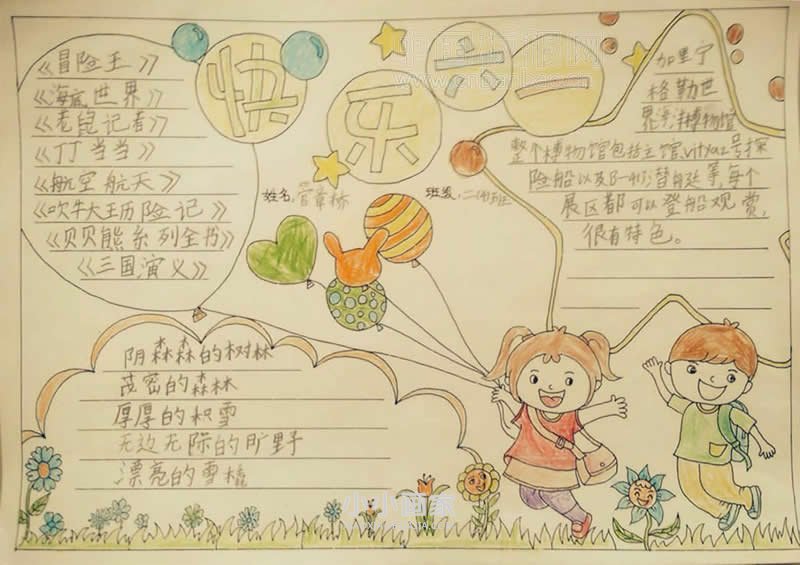 快乐六一
《冒险王》
《海底世界》
《老鼠记者》
《丁丁当当》
《航空航天》
《吹牛大王历险记》
《贝贝熊系列全书》
《三国演义》
姓名:
班级:
加里宁
格勒世
界海洋博物馆
整个博物馆包括主馆、vityaz号探
险船以及B-413潜艇等,每个
展区都可以登船观赏,
很有特色。
阴森森的树林
茂密的森林
厚厚的积雪
无边无际的旷野
漂亮的雪橇
小小画家